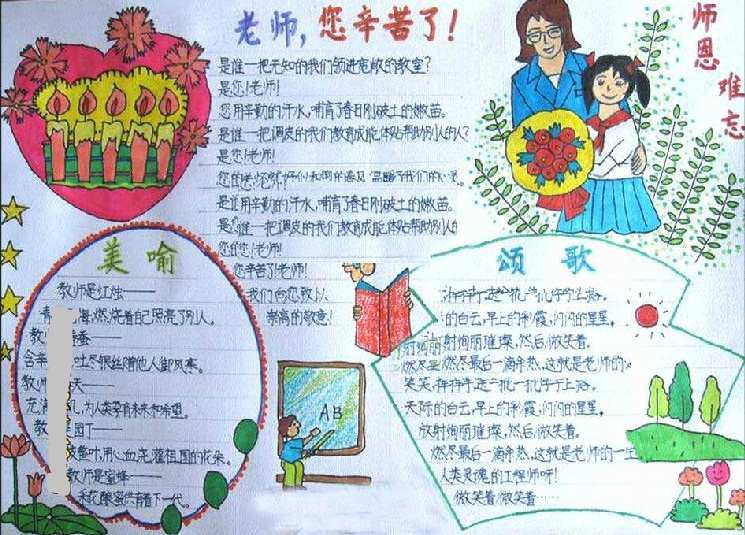 老师,您辛苦了!
师恩难忘
是谁一把无知的我们领进宽敞的教室?
是您!老师!
您用辛勤的汗水,哺育了春日刚破土的嫩苗。
是谁一把调皮的我们教育成能体贴帮助别人的人?
是您!老师!
是谁用辛勤的汗水,哺育了春日刚破土的嫩苗。
是谁一把调皮的我们教育成能体贴帮助别人的
您的您!老师!
您辛苦了!老师!
我们向您致以
崇高的敬意!
美喻
教师是红烛——
燃烧着自己照亮了别人。
教 蚕——
含辛 吐尽银丝
教师 天——
充满 ,为人类孕育未来和希望。
教 园丁——
用心血浇灌祖国的花朵。
教师是蜜蜂——
花酿蜜供育着下一代。
AB
颂歌
的白云,早上的彩霞,闪闪的星星。
射绚丽璀璨,然后,微笑着。
燃尽最后一滴 热,这就是老师的
天际的白云,早上的彩霞,闪闪的星星。
放射绚丽璀璨,然后,微笑着。
燃尽最后一滴 热,这就是老师的一生
人类灵魂的工程师呀!
微笑着,微笑着……